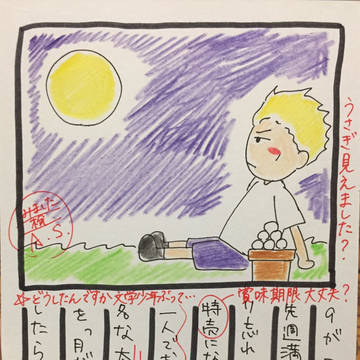 うさぎ見えました？
みました
A.S.
どうしたんですか文学少年ぶって…
賞味期限大丈夫？
のが
先週満
り忘れ
特売にな
一人でお
名な大
月が
したら